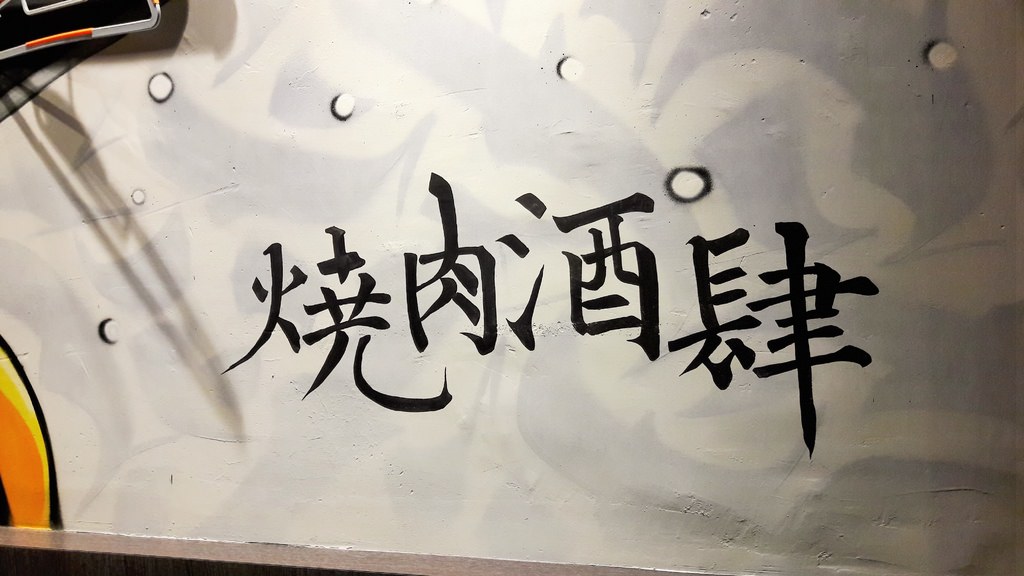 焼肉酒肆